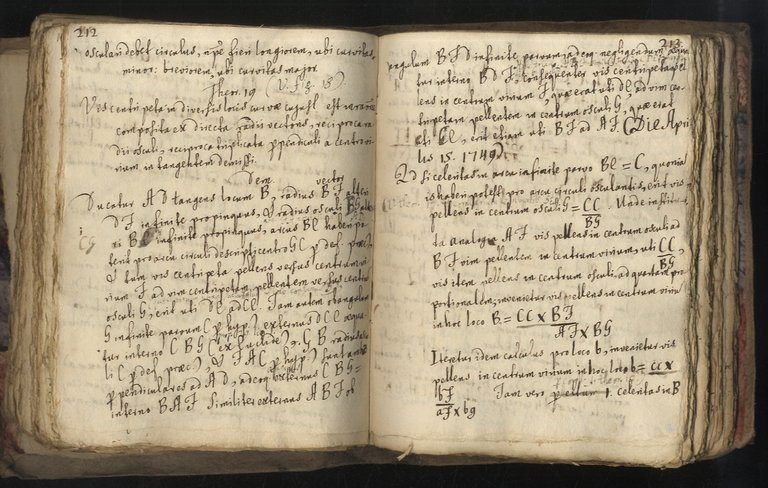 212
osculan debet circulus, nẽpe fieri longiorem, ubi curvitas
minor: breviorem, ubi curvitas major.
Theor. 19
Vis centripeta in diversis locis curvæ est in ratione
composita ex directa radii vectoris, reciproca ra
dii osculi, reciproca triplicata perpendiculi a centro vi
rium in tangentem demissi.
Dem.
vector
Ducatur AD tangens locum B, radius BF alteri
DF infinite propinquus, & radius osculi BG alte
ri infinite propinquus, arcus Bl haberi po
terit pro arcu circuli descripti centro G (p def. præc.)
& tum vis centripeta pellens versus centrum vi
rium F ad vim centripetam pellentem versus centrum
osculi G, erit uti dl ad Cl. Jam autem ob angulum
G infinite parvum (p hyp.) externus DCl æqua
tur interno CBG (ex Euclide) & GB radius
li (p def. præc.), & FAC (p hyp.) sunt ambo
ppendiculares ad AD, adeoq externus CBG =
interno BAF. Similiter externus ABF ob
213
angulum BFD infinite parvum, adeoq negligendum æqua
tur interno BDF. Consequenter vis centripeta pel
lens in centrum virium F, quæ erat uti dl ad vim cen
tripetam pellentem in centrum osculi G, quæ erat
uti Cl, erit etiam uti BF ad AF. (Die Apri
lis 15. 1749)
2d Si celeritas in arcu infinite parvo Bl = C, quonia
is haberi potest pro arcu circuli osculantis, erit vis
pellens in centrum osculi G = CC
BG
. Unde instit
ta analog AF vis pellens in centrum osculi ad
BF vim pellentem in centrum virium, uti CC
BG
vis item pellens in centrum osculi, ad quartam pro
portionalem; invenietur vis pellens in centrum viriu
in hoc loco B = CC x BF
AF x BG
Iteretur idem calculus pro loco b, invenietur vis
pellens in centrum virium in hoc loco b = cc x
bF
aF x bg
Jam vero celeritas in B